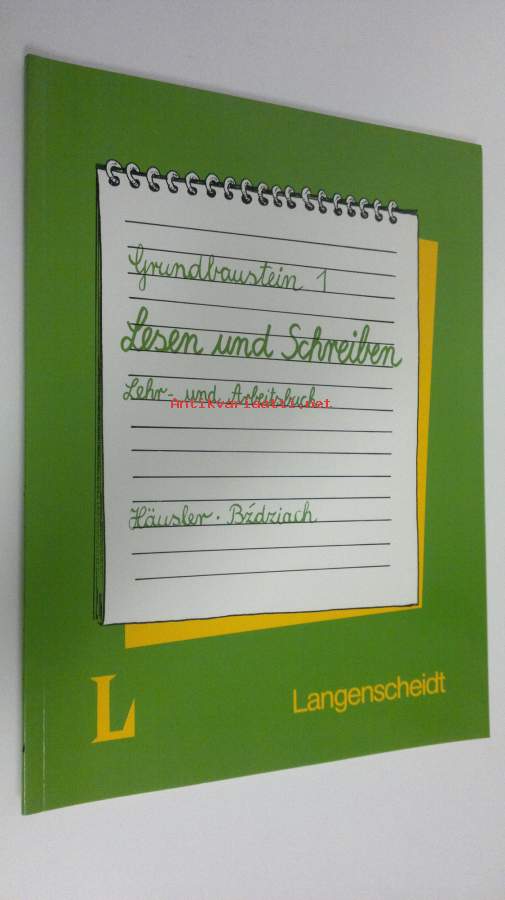 Grundbaustein 1
Lesen und Schreiben
Lehr- und Arbeitsbuch
Antikvariaatti.net
Häusler · Bździach
L
Langenscheidt